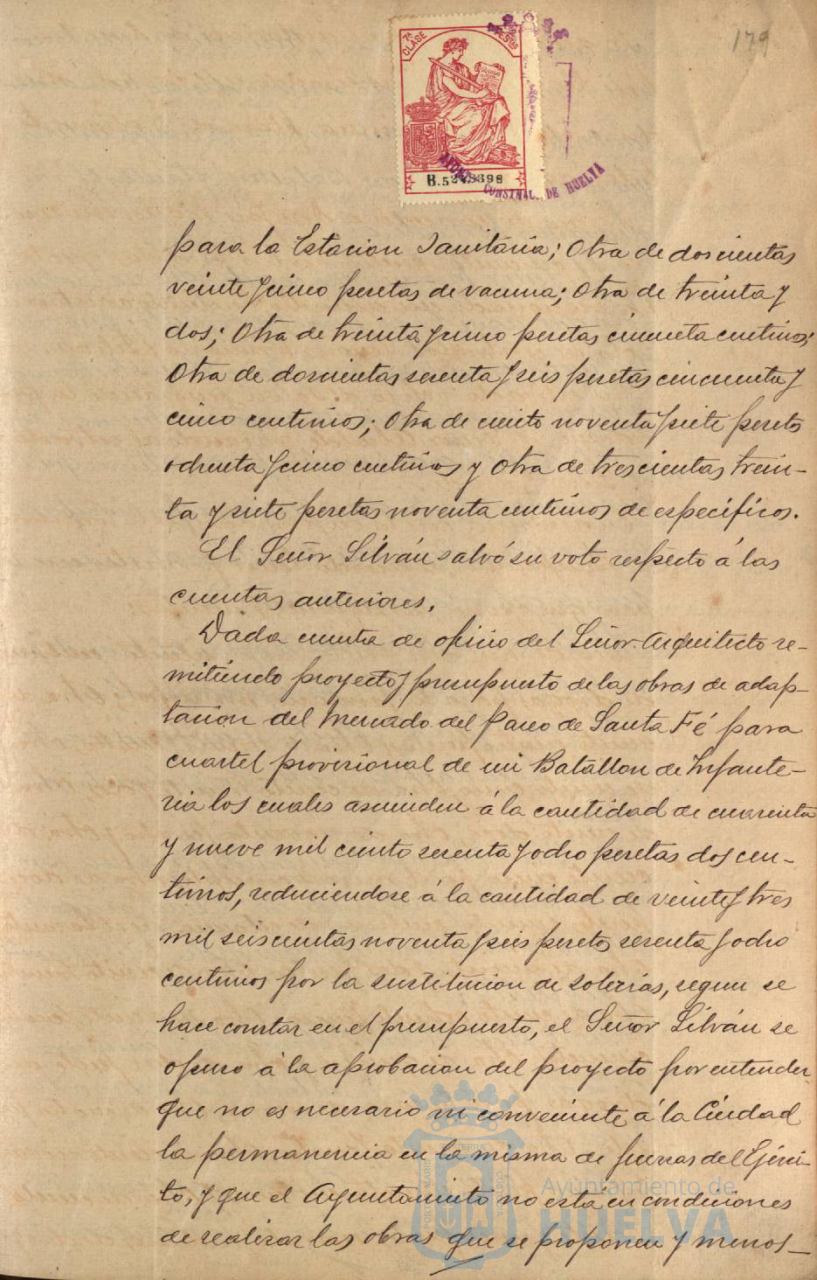 179
7ª CLASE
B.5249398
AYUNTº CONSTNAL. DE HUELVA
para la Estacion Sanitária; Otra de doscientas
veinte y cinco pesetas de vacuna; Otra de treinta y
dos; Otra de treinta y cinco pesetas cincueta centimos;
Otra de doscientas sesenta y seis pesetas cincuenta y
cinco centimos; Otra de ciento noventa y siete pesetas
ochenta y cinco centimos y Otra de trescientas trein-
ta y siete pesetas noventa centimos de específicos.
El Señor Silván salvó su voto respecto á las
cuentas anteriores.
Dada cuenta de oficio del Señor Arquitecto re-
mitiendo proyecto y presupuesto de las obras de adap-
tacion del Mercado del Paseo de Santa Fé para
cuartel provisional de un Batallon de Infante-
ria los cuales ascienden á la cantidad de cuarenta
y nueve mil ciento sesenta y ocho pesetas dos cen-
timos, reduciendose á la cantidad de veinte y tres
mil seiscientas noventa y seis pesetas sesenta y ocho
centimos por la sustitucion de solerías, segun se
hace constar en el presupuesto, el Señor Silván se
opuso á la aprobacion del proyecto por entender
que no es necesario ni conveniente á la Ciudad
la permanencia en la misma de fuerzas del Ejérci-
to, y que el Ayuntamiento no está en condiciones
de realizar las obras que se proponen y menos
Ayuntamiento de
HUELVA